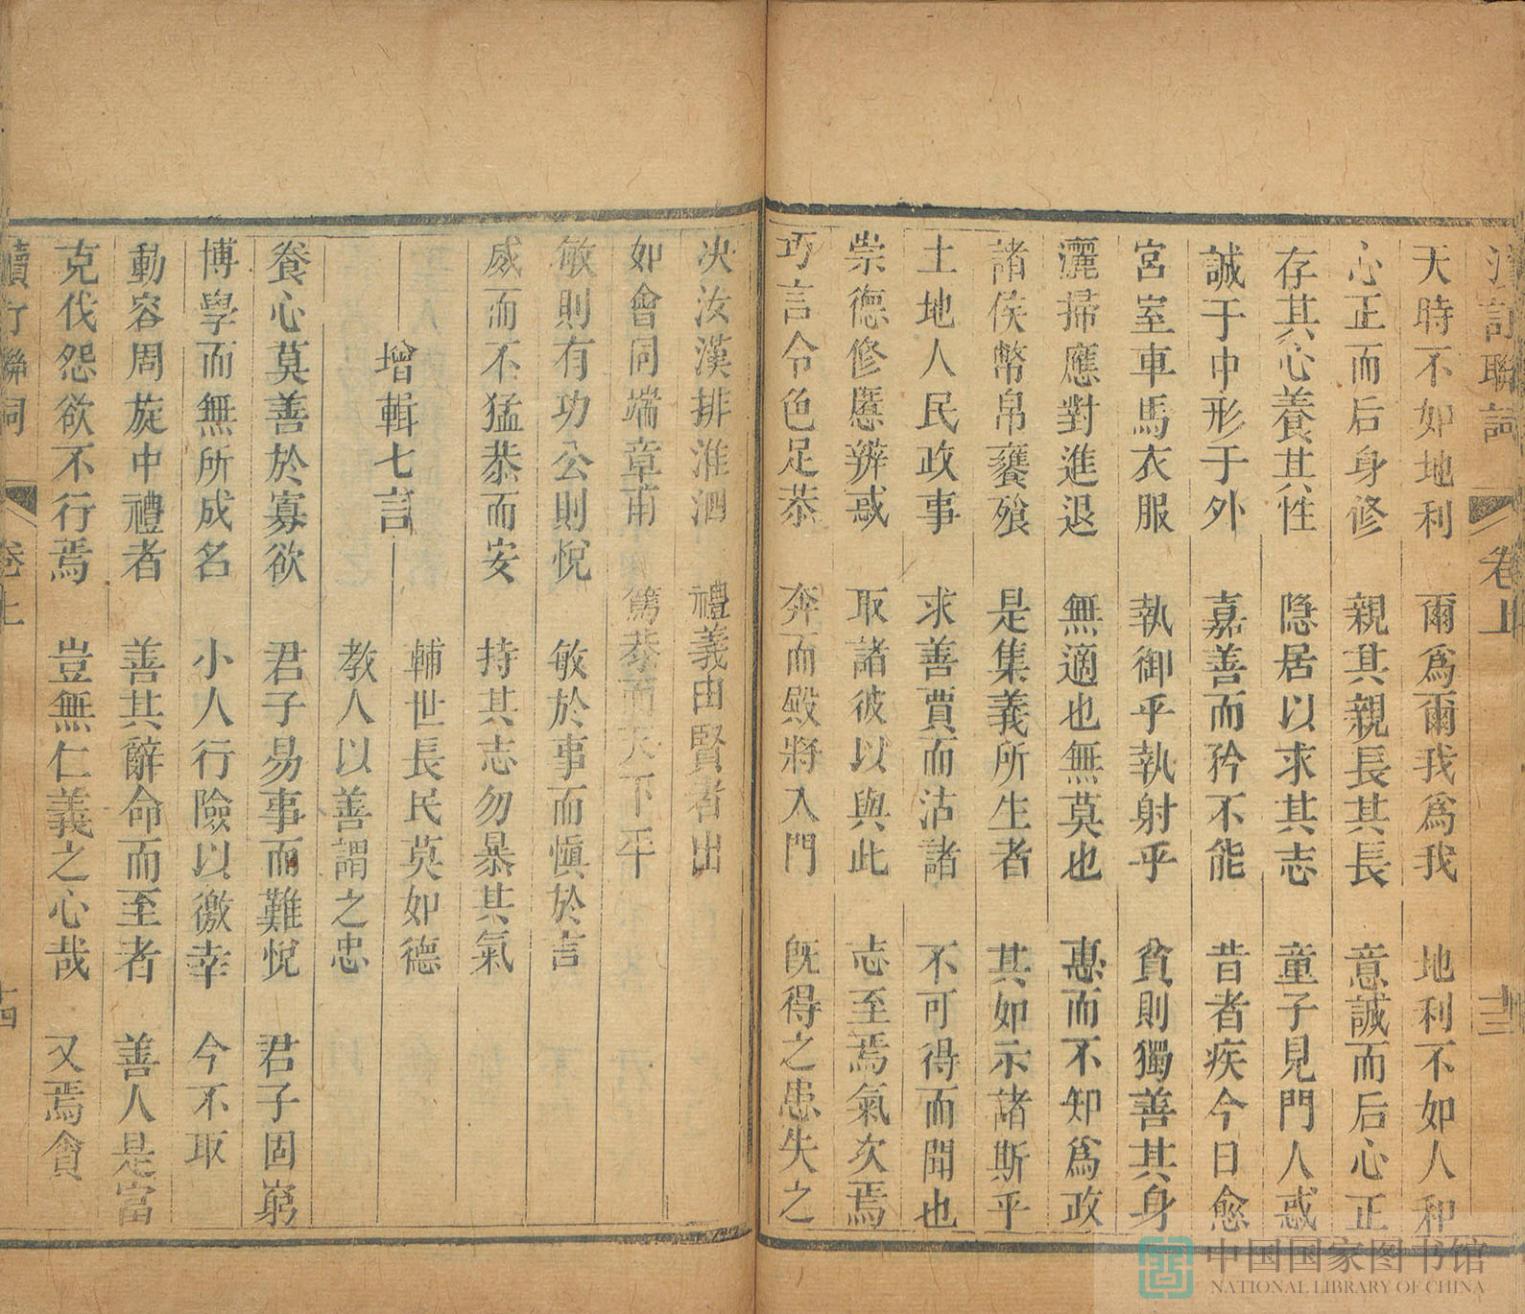 聯詞 卷上 十三
天時不如地利 爾爲爾我爲我 地利不如人和
心正而后身修 親其親長其長 意誠而后心正
存其心養其性 隱居以求其志 童子見門人惑
誠于中形于外 嘉善而矜不能 昔者疾今日愈
宮室車馬衣服 執御乎執射乎 貧則獨善其身
灑掃應對進退 無適也無莫也 惠而不知爲政
諸侯幣帛饔飧 是集義所生者 其如示諸斯乎
土地人民政事 求善賈而沽諸 不可得而聞也
崇德修慝辨惑 取諸彼以與此 志至焉氣次焉
巧言令色足恭 奔而殿將入門 旣得之患失之
决汝漢排淮泗 禮義由賢者出
如會同端章甫 篤恭而天下平
敏則有功公則悅 敏於事而愼於言
威而不猛恭而安 持其志勿暴其氣
增輯七言 輔世長民莫如德
教人以善謂之忠
養心莫善於寡欲 君子易事而難悅 君子固窮
博學而無所成名 小人行險以徼幸 今不取
動容周旋中禮者 善其辭命而至者 善人是富
克伐怨欲不行焉 豈無仁義之心哉 又焉貪
聯詞 卷上 十四
中国国家图书馆
NATIONAL LIBRARY OF CHINA